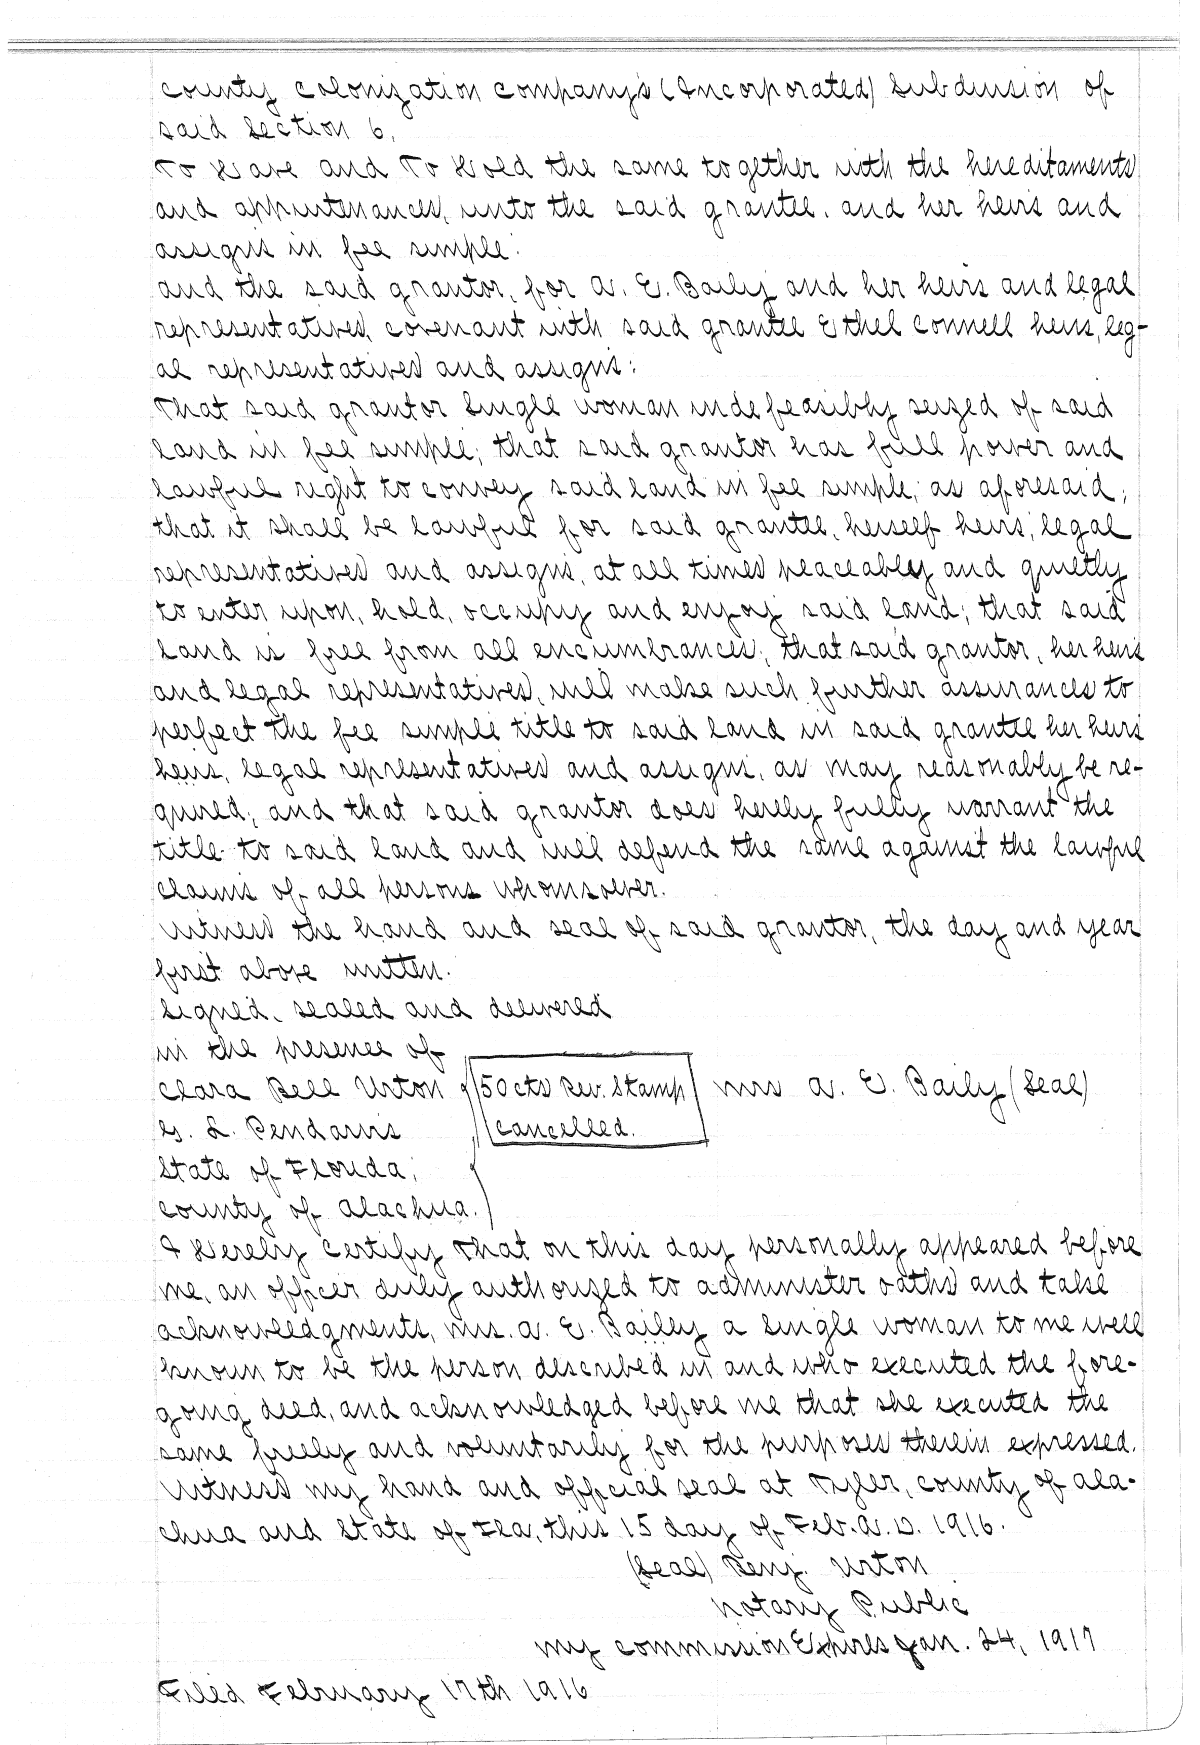 County Colonization Company's (Incorporated) Subdivision of
said Section 6,
To Have and To Hold the same together with the hereditaments
and appurtenances, unto the said grantee, and her heirs and
assigns in fee simple.
And the said grantor, for A. E. Baily and her heirs and legal
representatives, covenant with said grantee Ethel Connell heirs, leg-
al representatives and assigns:
That said grantor Single woman indefeasibly seized of said
land in fee simple; that said grantor has full power and
lawful right to convey said land in fee simple, as aforesaid;
that it shall be lawful for said grantee, herself heirs, legal
representatives and assigns, at all times peaceably and quietly
to enter upon, hold, occupy and enjoy said land; that said
land is free from all encumbrances; that said grantor, her heirs
and legal representatives, will make such further assurances to
perfect the fee simple title to said land in said grantee her heirs
heirs, legal representatives and assigns, as may reasonably be re-
quired; and that said grantor does hereby fully warrant the
title to said land and will defend the same against the lawful
claims of all persons whomsoever.
Witness the hand and seal of said grantor, the day and year
first above written.
Signed, sealed and delivered
in the presence of
Clara Bell Urton 50cts Rev. Stamp Mrs A. E. Baily (Seal)
G. L. Pendarvis cancelled.
State of Florida,
County of Alachua.)
I Hereby Certify That on this day personally appeared before
me, an officer duly authorized to administer oaths and take
acknowledgments, Mrs. A. E. Bailey a Single woman to me well
known to be the person described in and who executed the fore-
going deed, and acknowledged before me that she executed the
same freely and voluntarily for the purposes therein expressed.
Witness my hand and official seal at Tyler, County of Ala-
chua and State of Fla, this 15 day of Feb. A.D. 1916.
(Seal) Benj. Urton
Notary Public
My commission Expires Jan. 24, 1917
Filed February 17th 1916